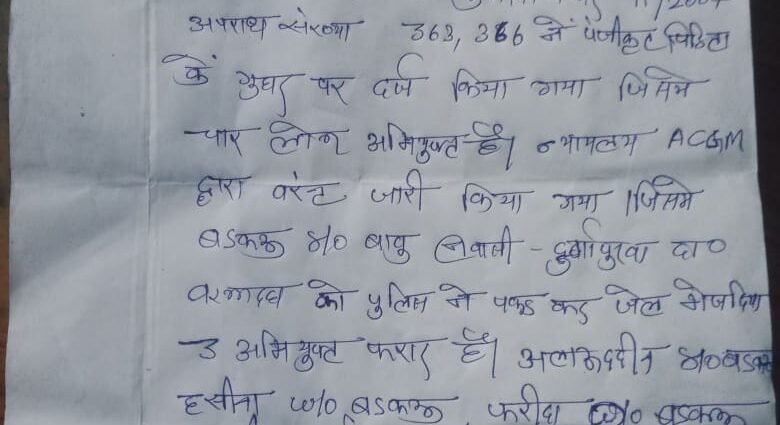 अपराध संख्या 363, 366 में पंजीकृत पिडिता
के गुहार पर दर्ज किया गया जिसमे
चार लोग अभियुक्त है। न्यायलय ACJM
द्वारा वारंट जारी किया गया। जिसमे
बडकऊ S/0 बाबु निवासी - दुर्गापुरवा दा०
को पुलिस ने पकड कर जेल भेज दिया
3 अभियुक्त फरार है। अलाऊद्दीन S/0 बडकऊ
हसीना W/0 बडकऊ, फरीदा W/0 बडकऊ